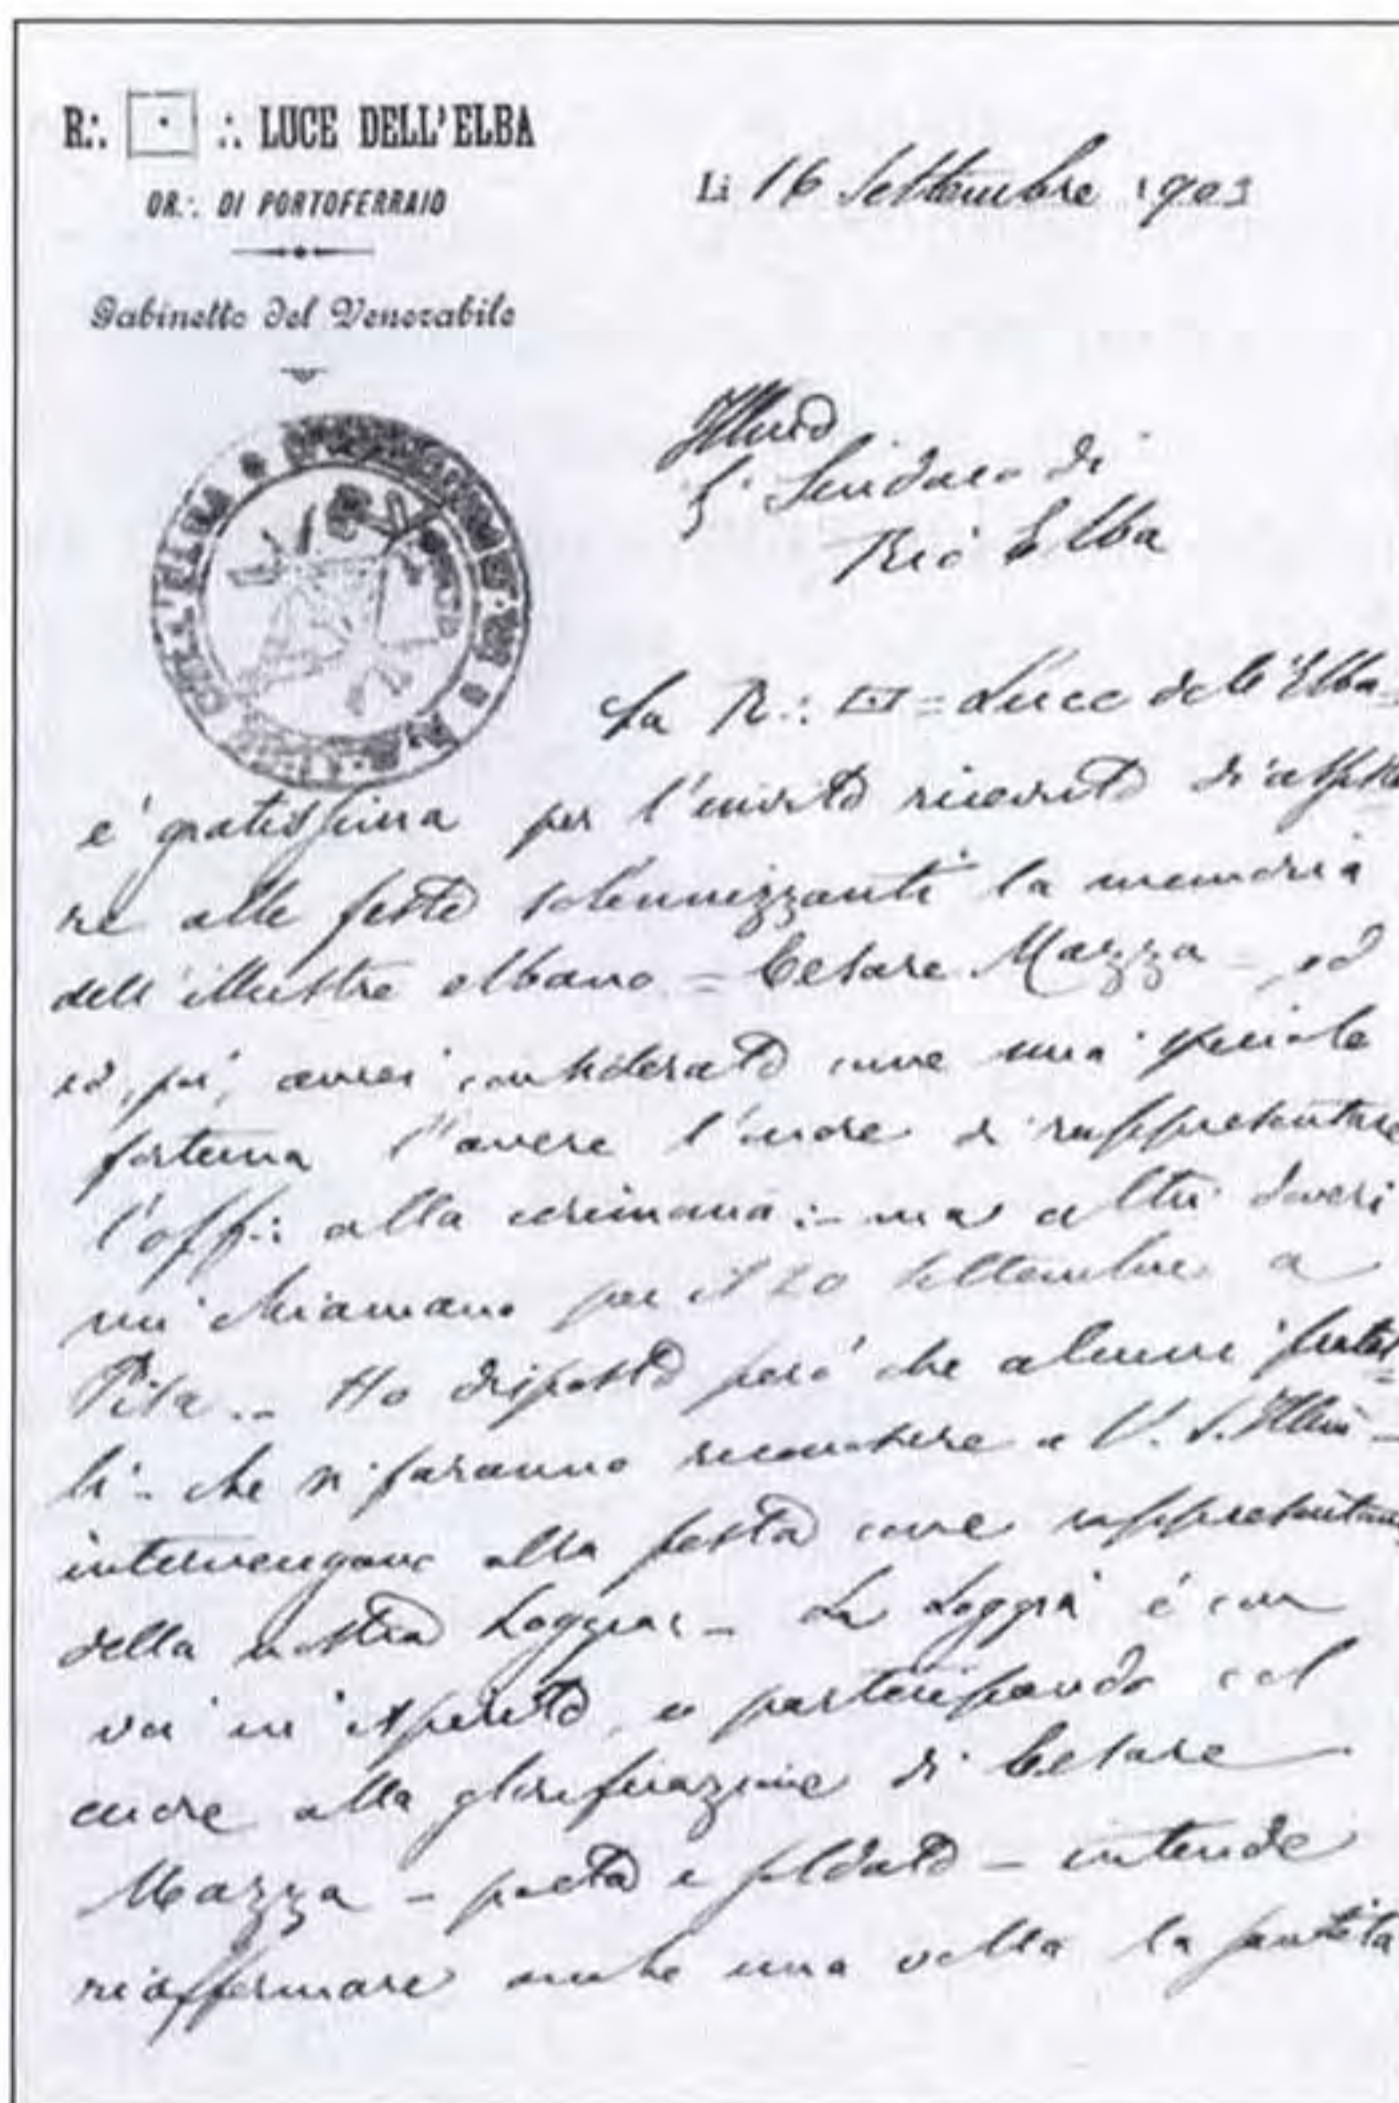 R∴ ∴ LUCE DELL'ELBA
OR∴ DI PORTOFERRAIO
Gabinetto del Venerabile
Li 16 Settembre 1903
Illmo
S. Sindaco di
Rio Elba
La R∴ = Luce dell'Elba =
è gratissima per l'invito ricevuto di assiste
re alle feste solennizzanti la memoria
dell'illustre elbano = Cesare Mazza = ed
ed, poi, avrei considerato come una speciale
fortuna l'avere l'onore di rappresentare
l'off∴ alla cerimonia :- ma altri doveri
mi chiamano per il 20 Settembre a
Pisa .- Ho disposto però che alcuni fratel
li - che si faranno riconoscere a V. S. Illma -
intervengano alla festa come rappresentanti
della nostra Loggia. - La Loggia è con
voi in ispirito, e partecipando col
cuore alla glorificazione di Cesare
Mazza - poeta e soldato - intende
riaffermare anche una volta la santità